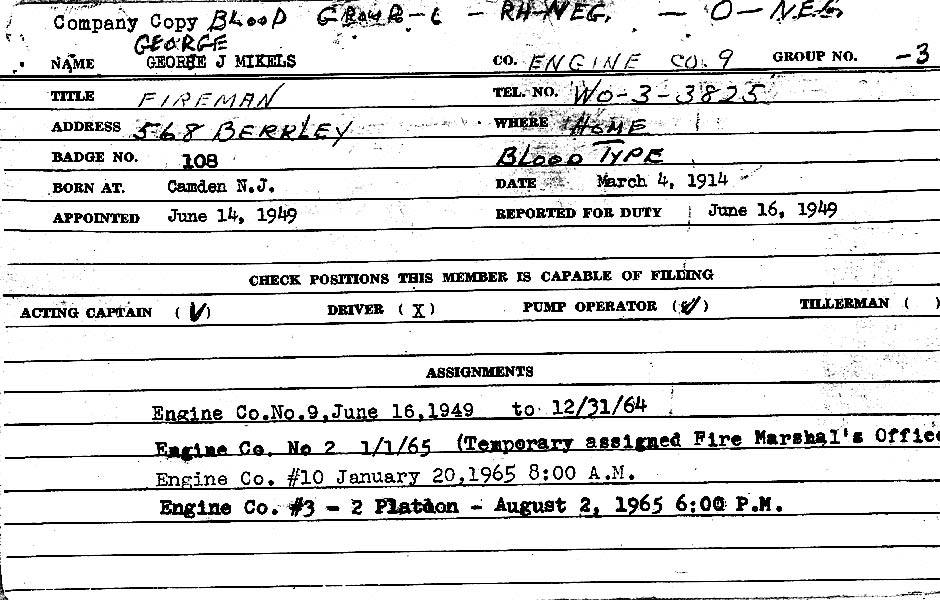 Company Copy BLOOD GROUP - RH-NEG. - O - NEG
GEORGE
NAME GEORHE J MIKELS CO. ENGINE CO. 9 GROUP NO. -3
TITLE FIREMAN TEL. NO. WO-3-3825
ADDRESS 568 BERKLEY WHERE HOME
BADGE NO. 108 BLOOD TYPE
BORN AT. Camden N.J. DATE March 4, 1914
APPOINTED June 14, 1949 REPORTED FOR DUTY June 16, 1949
CHECK POSITIONS THIS MEMBER IS CAPABLE OF FILLING
ACTING CAPTAIN (✓) DRIVER (X) PUMP OPERATOR (✓) TILLERMAN ( )
ASSIGNMENTS
Engine Co.No.9,June 16,1949 to 12/31/64
Engine Co. No 2 1/1/65 (Temporary assigned Fire Marshal's Office
Engine Co. #10 January 20,1965 8:00 A.M.
Engine Co. #3 - 2 Platoon - August 2, 1965 6:00 P.M.